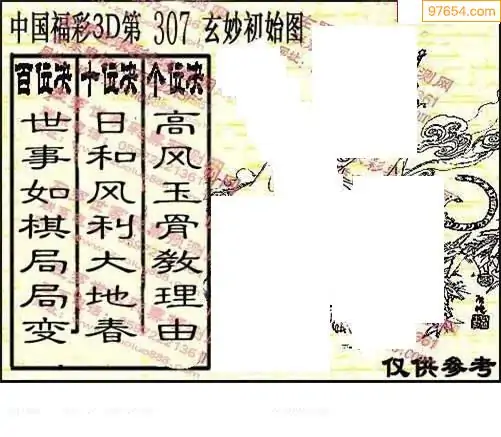 97654.com
中国福彩3D第 307 玄妙初始图
百位决 十位决 个位决
世事如棋局局变
日和风利大地春
高风玉骨教理由
仅供参考